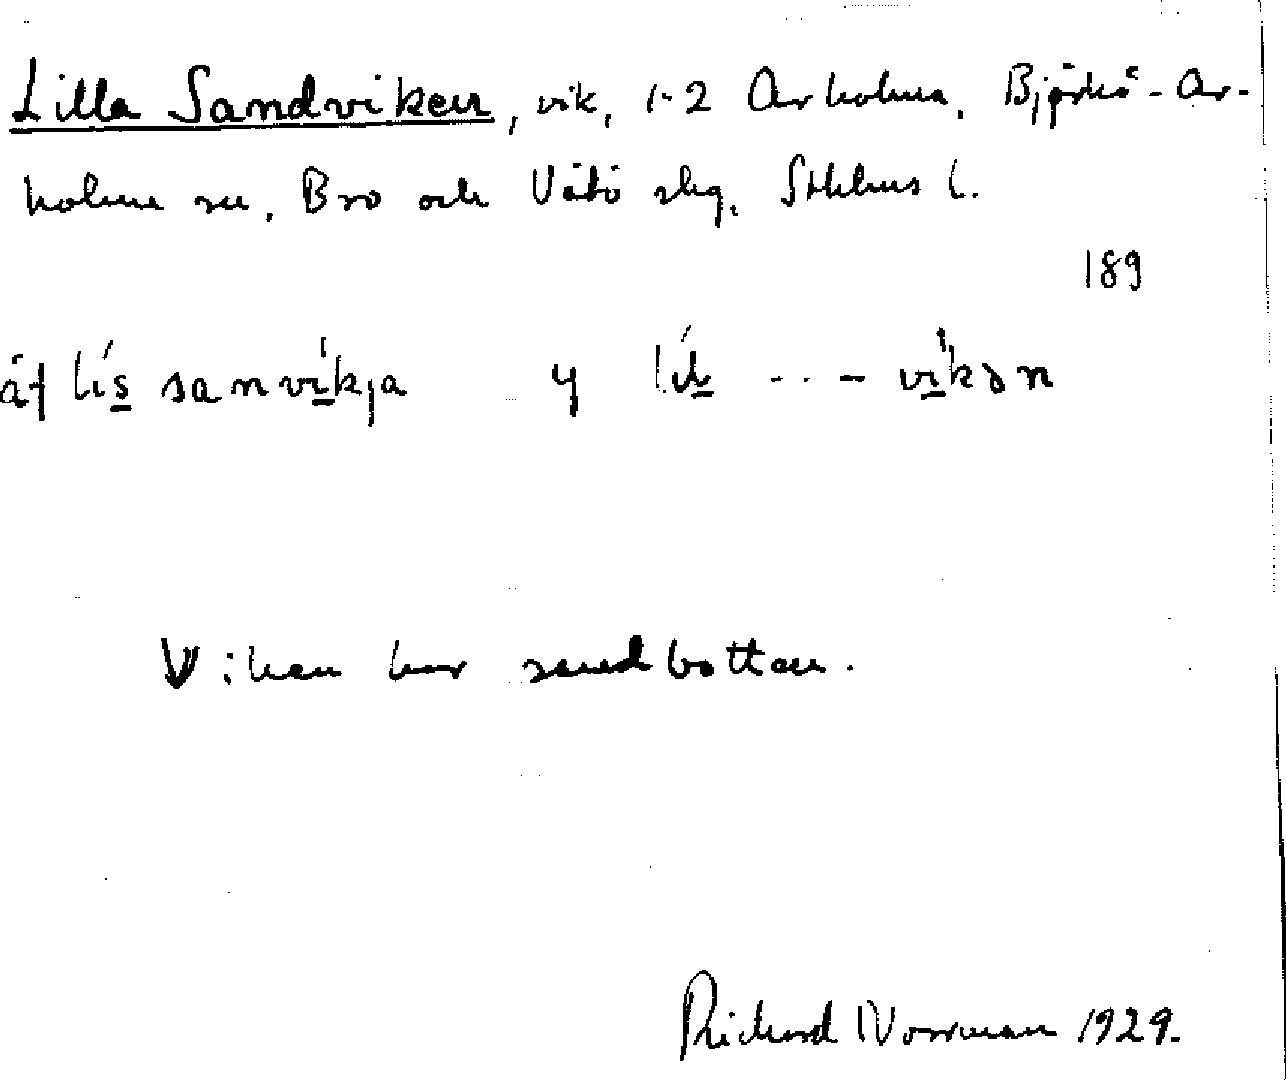 Lilla Sandviken, vik, 1-2 Arholma, Björkö-Ar-
holma sn, Bro och Vätö slg, Sthlms l.
189
sanvíkja y ... - víkən
Viken har sandbotten.
Rickard Norrman 1929.